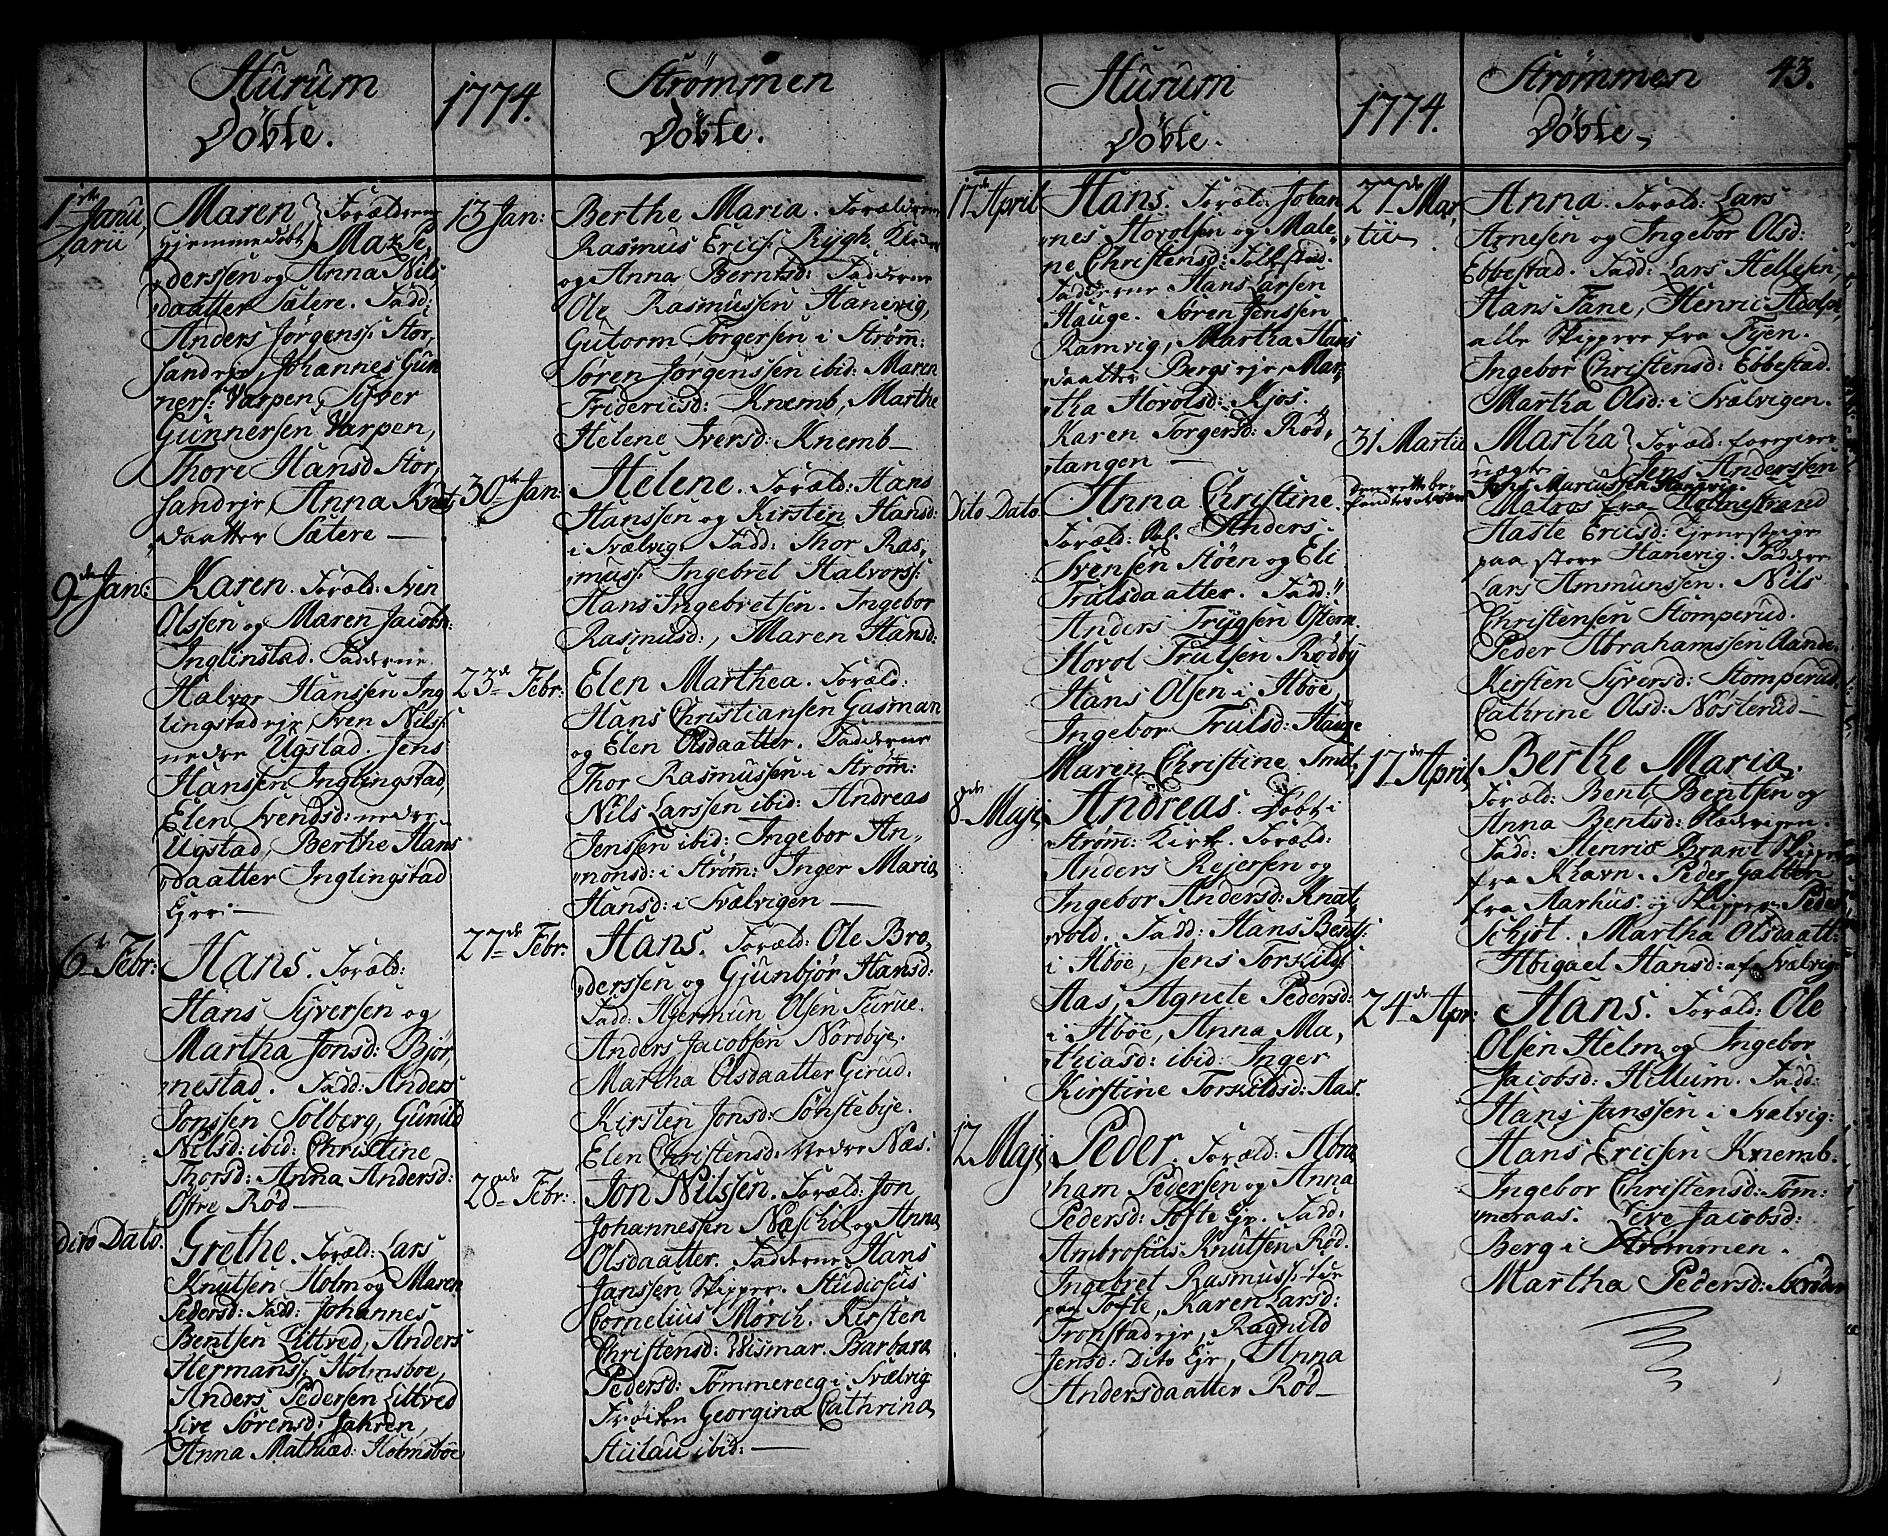 Hurum
Döbte.
1774.
Strömmen
Döbte.
1ste Janu,
Jarii
Maren } Forælderne
hjemmedöbt } Maz Pe,
derssen og Anna Nils,
daatter Sætere. Fadd:
Anders Jörgenss: Stor,
sand eje, Johannes Gun
ners: Varpen, Syver
Gunnersen Varpen,
Thore Hansd Stor,
sand eje, Anna Knuts
daatter Sætere —
9de Jan:
Karen. Foræld: Sven
Olssen og Maren Jacobs:
Inglinstad. Fadderne
Halvor Hanssen Ing
lingstad eje, Sven Nilss:
nedre Ugstad. Jens
Hanssen Inglingstad,
Elen Svendsd: nedre
Ugstad, Berthe Hans
daatter Inglingstad
Ejeri —
6te Febr:
Hans. Foræld:
Hans Syversen og
Martha Jonsd: Björ,
nestad. Fadd: Anders
Jonssen Solberg, Gunild
Nilsd: ibid: Christine
Thorsd: Anna Andersd:
Östre Röd —
Dito Dato.
Grethe. Foræld: Lars
Knutsen Holm og Maren
Pedersd: Fadd: Johannes
Bentsen Littved, Anders
Hermanss: Holmsboe,
Anders Pedersen Littved
Live Sörensd: Jahren,
Anna Mathiæd: Holmsböe
13 Jan:
Berthe Maria. Forælderne
Rasmus Erics: Rygh.
og Anna Berntsd: Fadderne
Ole Rasmussen Hanevig,
Gutorm Torgersen i Strömm:
Sören Jörgenssen ibid: Maren
Fridericsd: Knemb, Marthe
Helene Iversd: Knemb —
30te Jan:
Helene. Foræld: Hans
Hanssen og Kirsten Hansd:
i Svælvig. Fadd: Thor Ras,
muss: Ingebret Halvorss:
Hans Ingebretsen. Ingebor
Rasmusd:, Maren Hansd:
23de Febr:
Elen Marthea. Foræld:
Hans Christiansen Gasman
og Elen Olsdaatter. Fadderne
Thor Rasmussen i Ström:
Nils Larssen ibid: Andreas
Jenssen ibid: Ingebor An,
monsd: i Ström: Inger Maria
Hansd: i Svælvigen —
27de Febr.
Hans. Foræld: Ole Bro,
derssen og Gjunbjör Hansd:
Fadd: Hjermun Olsen Furue.
Anders Jacobsen Nordbye.
Martha Olsdaatter Girud.
Kirsten Jonsd: Sönstebye.
Elen Christensd: Nedre Næs.
28de Febr:
Jon Nilssen. Foræld: Jon
Johannessen Næschil og Anna
Olsdaatter. Fadderne Hans
Janssen Skipper. Studiosus
Cornelius Mörch. Kirsten
Christensd: Wismar. Barbara
Pedersd: Tömmereeg i Svælvig
Fröiken Georgina Cathrina
Stulau ibid: —
Hurum
Döbte.
1774.
Strömmen
Döbte
43.
17de April
Hans. Foræld: Johan
nes Hovolsen og Male,
ne Christensd: Tolfstad.
Fadderne Hans Larsen
Hauge. Sören Jenssen
Ramvig, Martha Hans
daatter Bergs eje, Mar,
tha Hovolsd: Kjos.
Karen Torgersd: Röd,
tangen —
Dito Dato.
Anna Christine.
Foræld: Anders
Svensen Stöen og Eli
Trulsdaatter. Fadd:
Anders Trygsen Östern.
Hovol Trulsen Rödby
Hans Olsen i Aböe,
Ingebor Trulsd: Hauge
Maren Christine Smit,
8de Maji,
Andreas. Döbt i
Ström: Kirk. Foræld:
Anders Rejersen og
Ingebor Andersd: Knat,
vold. Fadd: Hans Bents:
i Aböe, Jens Torkilds:
Aas, Agnete Pedersd:
i Aböe, Anna Ma,
thiasd: ibid: Inger
Kirstine Torkildsd: Aas.
12 Maji,
Peder. Foræld: Abra
ham Pedersen og Anna
Pedersd: Tofte Ejr. Fadd:
Ambrosius Knutsen Röd.
Ingebret Rasmuss:
paa Tofte, Karen Larsd:
Tronstad eje, Ragnild
Jensd: Dito Ejr, Anna
Andersdaatter Röd —
27de Mar,
tii
Anna. Foræld: Lars
Arnesen og Ingebor Olsd:
Ebbestad. Fadd: Lars Hellesen,
Hans Fane, Henric Adolph,
alle Skippere fra Fyen.
Ingebor Christensd: Ebbestad.
Martha Olsd: i Svælvigen.
31 Martii
Martha } Foræld: foregivne
uægte Jens Anderssen
Den rette be-
Jens Mariussen Hanevig.
Matros fra Holmestrand
Haste Ericsd: Tjenestpige
paa store Hanevig. Fadder
Lars Ammunssen. Nils
Christensen Stomperud.
Peder Abrahamssen Aande,
Kirsten Syversd: Stomperud
Cathrine Olsd: Nösterud —
17de April,
Berthe Maria.
Foræld: Bent Bentsen og
Anna Bentsd: Blædevigen.
Fadd: Henric Brant Skipper
fra Khavn. Peder Gatten
fra Aarhus. og Skipper Peder
Schjöt. Martha Olsdaatt:
Abigael Hansd: af Svælvig:
24de Apr:
Hans. Foræld: Ole
Olsen Helm og Ingebor
Jacobsd: Hellum. Fadd:
Hans Janssen i Svælvig:
Hans Ericsen Knemb.
Ingebor Christensd: Töm:
meraas. Live Jacobsd:
Berg i Strömmen.
Martha Pedersd: